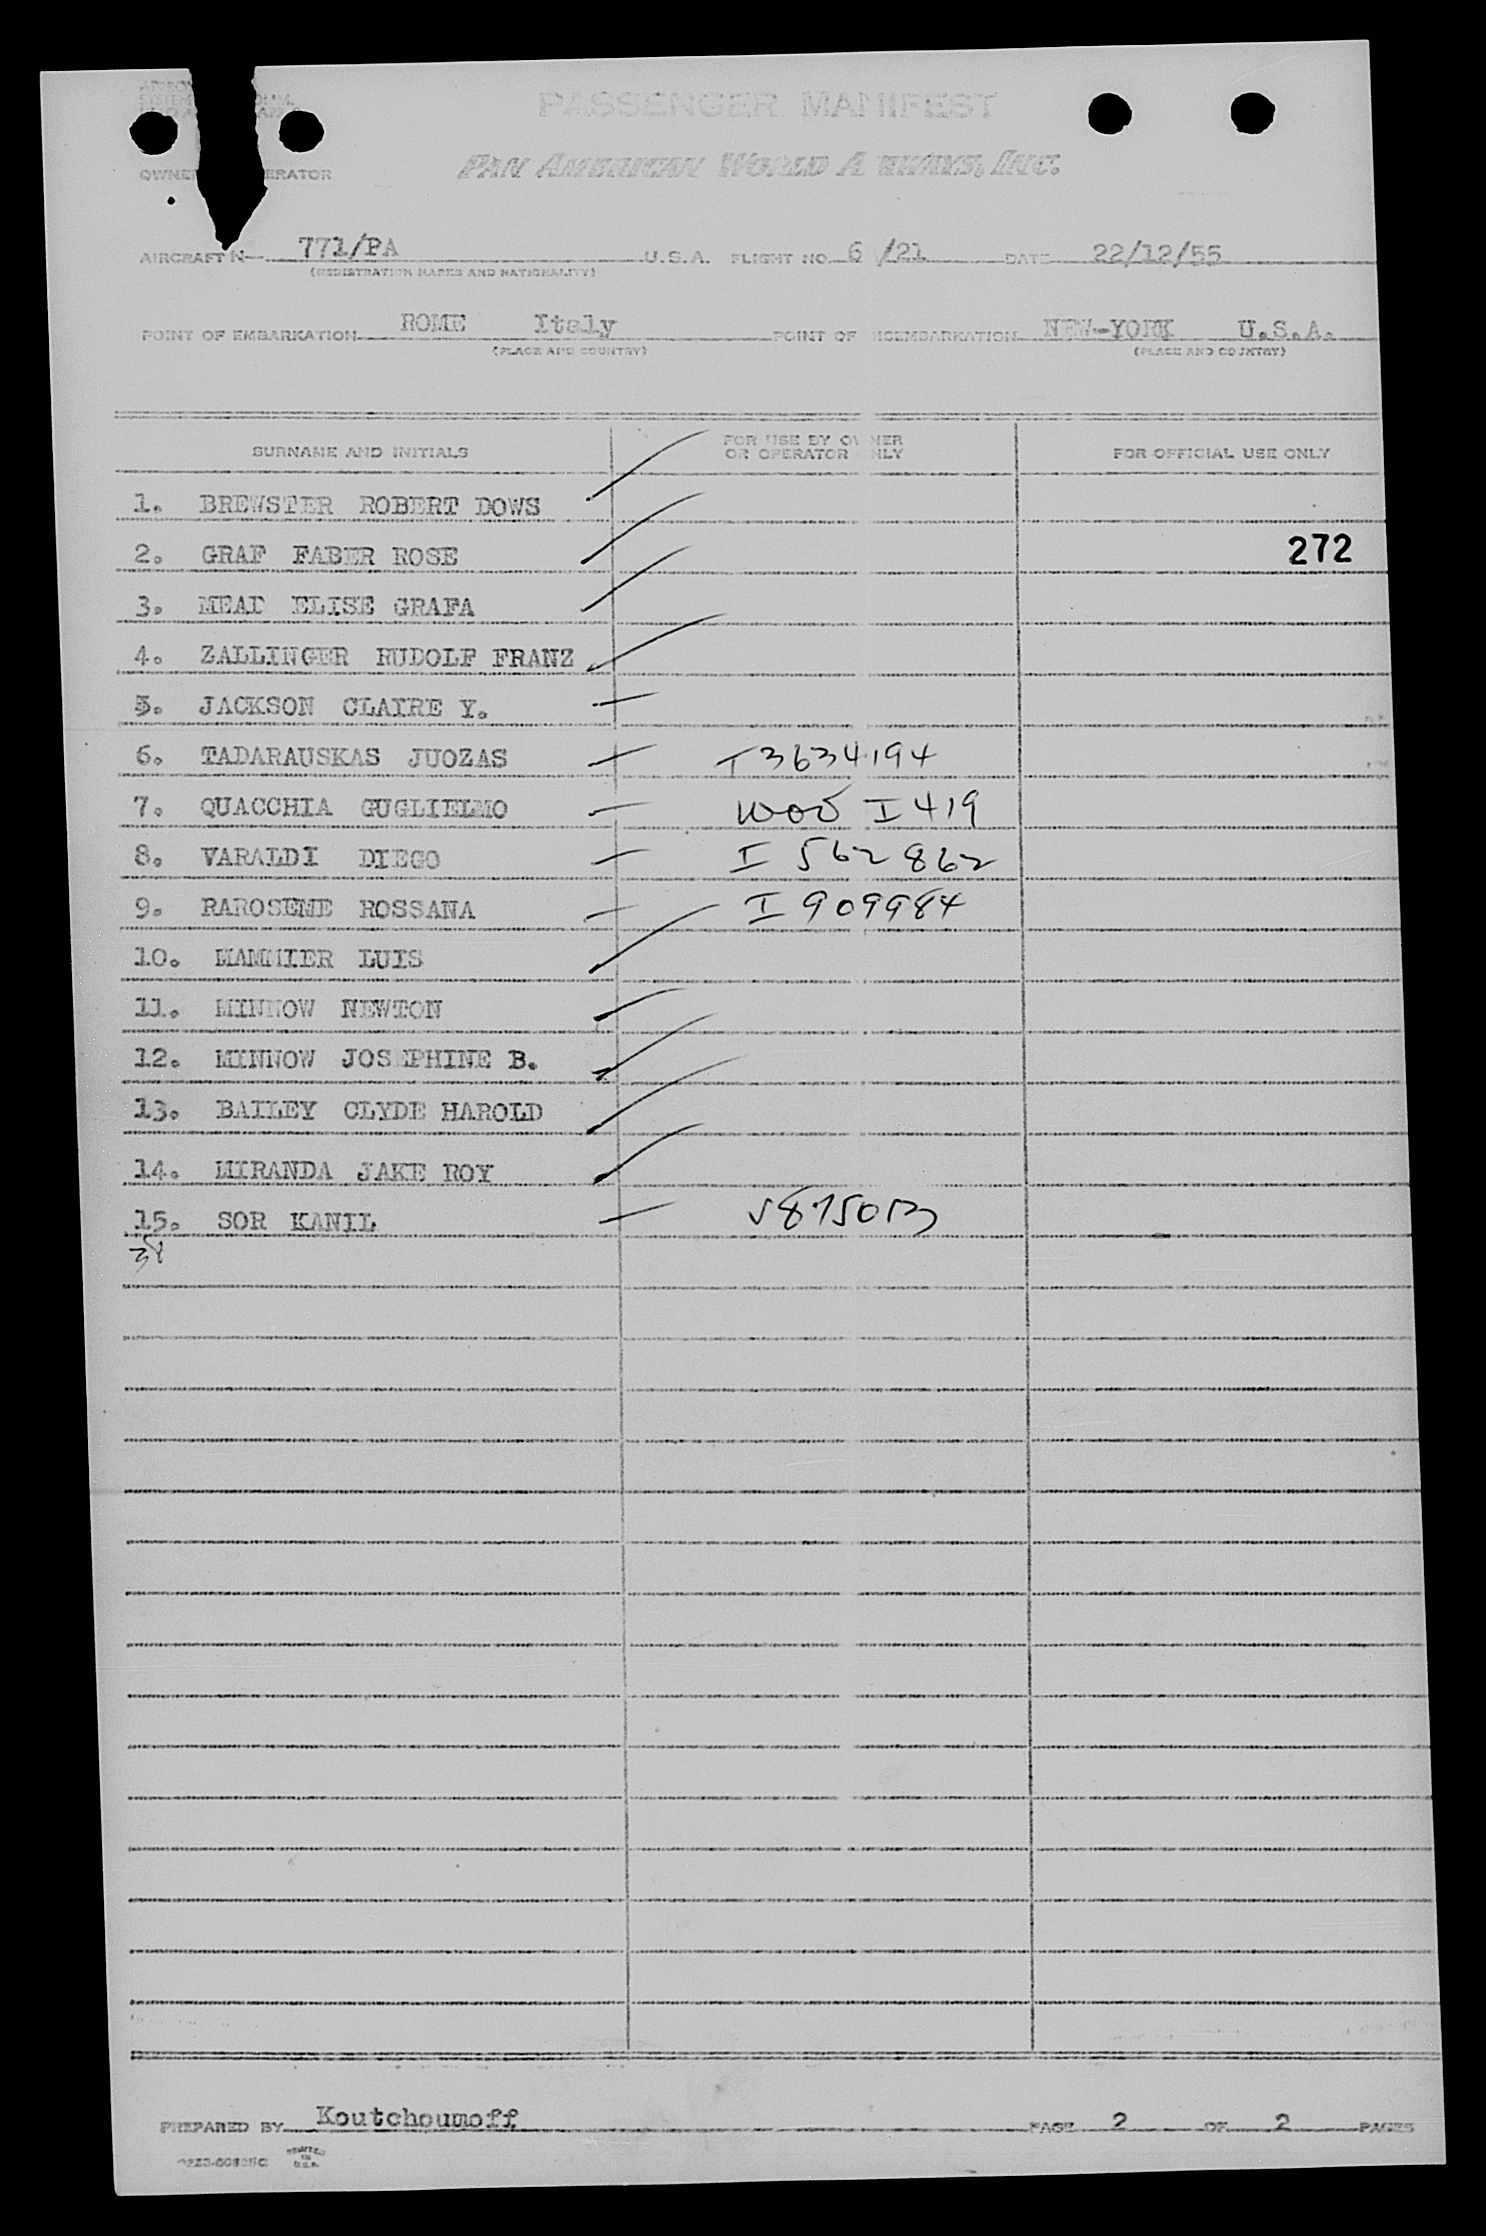 PASSENGER MANIFEST
PAN AMERICAN WORLD A RWAYS, INC.
OWNE ERATOR
AIRCRAFT N- 771/PA U.S.A. FLIGHT NO. 6 /21 DATE 22/12/55
(REGISTRATION MARKS AND NATIONALITY)
POINT OF EMBARKATION ROME Italy POINT OF ISEMBARKATION NEW-YORK U.S.A.
(PLACE AND COUNTRY) (PLACE AND COUNTRY)
SURNAME AND INITIALS FOR USE BY OWNER OR OPERATOR NLY FOR OFFICIAL USE ONLY
1. BREWSTER ROBERT DOWS
2. GRAF FABER ROSE 272
3. MEAD ELISE GRAFA
4. ZALLINGER RUDOLF FRANZ
5. JACKSON CLAIRE Y.
6. TADARAUSKAS JUOZAS T3634194
7. QUACCHIA GUGLIELMO I419
8. VARALDI DIEGO I 562 862
9. RAROSEME ROSSANA I 909984
10. MAMMIER LUIS
11. MINNOW NEWTON
12. MINNOW JOSEPHINE B.
13. BAILEY CLYDE HAROLD
14. MIRANDA JAKE ROY
15. SOR KANIL
38
PREPARED BY Koutchoumoff PAGE 2 OF 2 PAGES
PRINTED
IN
U.S.A.